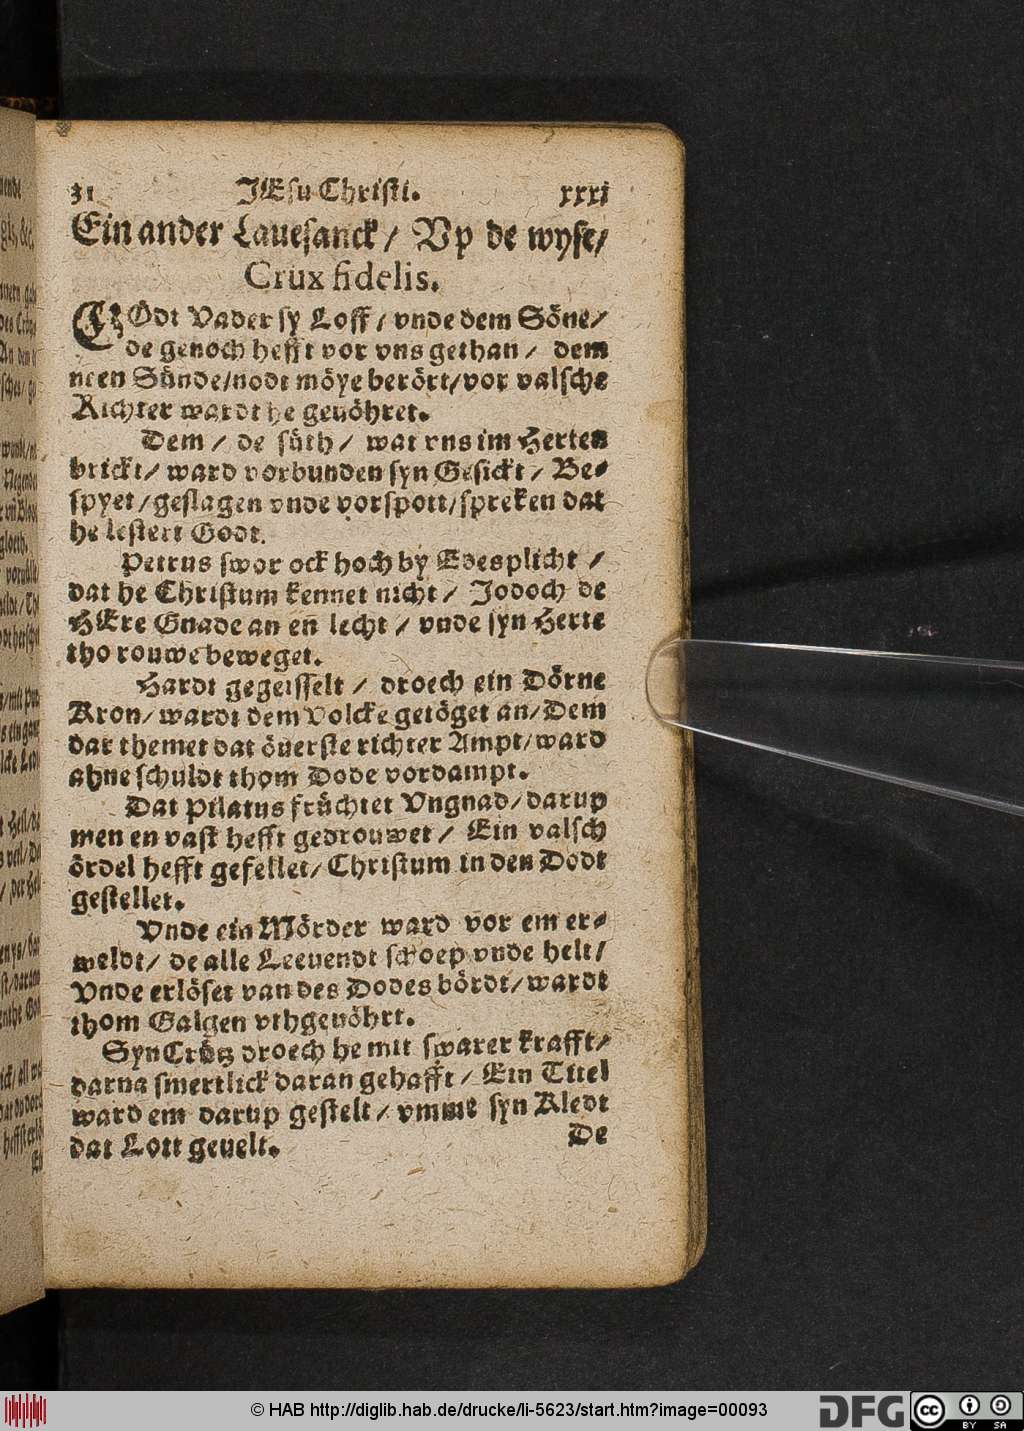 31 JEsu Christi. xxxi
Ein ander Lauesanck / Vp de wyse /
Crux fidelis.
GOdt Vader sy Loff / vnde dem Söne /
de genoch hefft vor vns gethan / dem
neen Sünde / nodt möye berört / vor valsche
Richter wardt he geuöhret.
Dem / de süth / wat vns im Herten
brickt / ward vorbunden syn Gesickt / Be-
spyet / geslagen vnde vorspott / spreken dat
he lestert Godt.
Petrus swor ock hoch by Edesplicht /
dat he Christum kennet nicht / Jodoch de
HEre Gnade an en lecht / vnde syn Herte
tho rouwe beweget.
Hardt gegeisselt / droech ein Dörne
Kron / wardt dem Volcke getöget an / Dem
dar themet dat öuerste richter Ampt / ward
ahne schuldt thom Dode vordampt.
Dat Pilatus früchtet Vngnad / darup
men en vast hefft gedrouwet / Ein valsch
ördel hefft gefellet / Christum in den Dodt
gestellet.
Vnde ein Mörder ward vor em er-
weldt / de alle Leeuendt schoep vnde helt /
Vnde erlöset van des Dodes bördt / wardt
thom Galgen vthgeuöhrt.
Syn Crütz droech he mit swarer krafft /
darna smertlick daran gehafft / Ein Titel
ward em darup gestelt / vmme syn Kledt
dat Lott geuelt.
De
© HAB http://diglib.hab.de/drucke/li-5623/start.htm?image=00093
DFG
cc BY SA